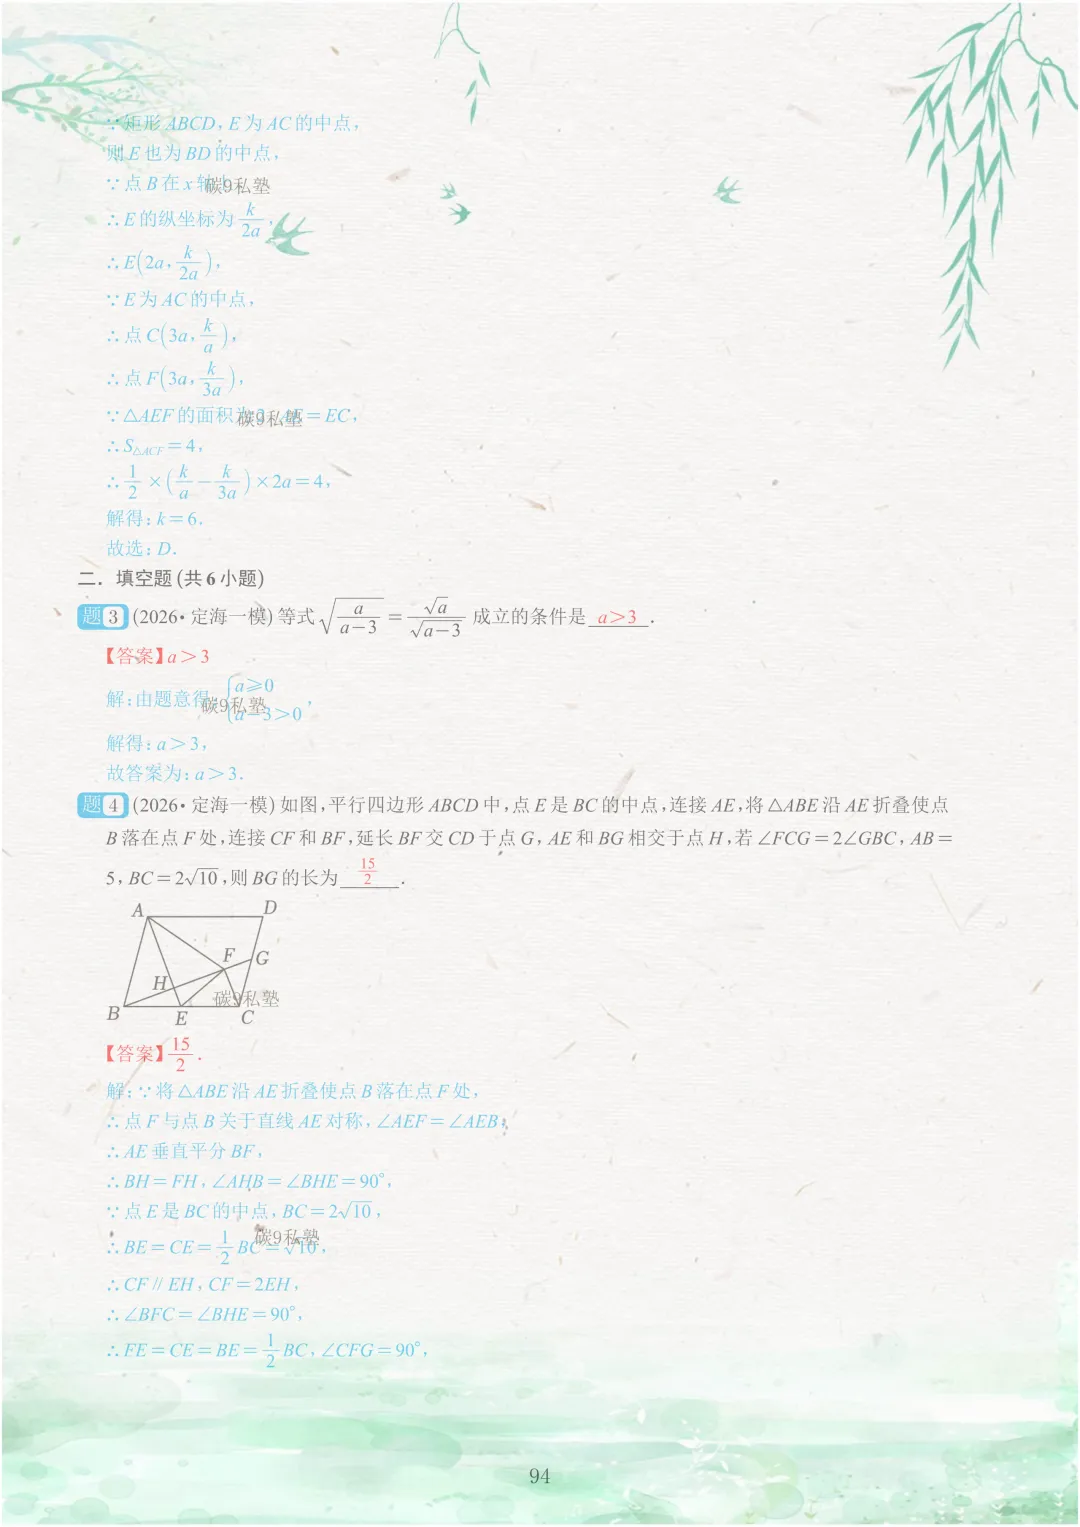 ∵矩形ABCD,E为AC的中点,
则E也为BD的中点,
∵点B在x轴
碳9私塾
∴E的纵坐标为k/2a,
∴E(2a,k/2a),
∵E为AC的中点,
∴点C(3a,k/a),
∴点F(3a,k/3a),
∵△AEF的面积为2,AE=EC,
碳9私塾
∴S△ACF=4,
∴1/2×(k/a-k/3a)×2a=4,
解得:k=6.
故选:D.
二.填空题(共6小题)
题3 (2026·定海一模)等式√(a/(a-3))=√a/√(a-3) 成立的条件是 a>3 .
【答案】a>3
解:由题意得 {a⩾0
碳9私塾
a-3>0 ,
解得:a>3,
故答案为:a>3.
题4 (2026·定海一模)如图,平行四边形ABCD中,点E是BC的中点,连接AE,将△ABE沿AE折叠使点
B落在点F处,连接CF和BF,延长BF交CD于点G,AE和BG相交于点H,若∠FCG=2∠GBC,AB=
5,BC=2√10,则BG的长为 15/2 .
A D
F G
H
碳9私塾
B E C
【答案】15/2.
解:∵将△ABE沿AE折叠使点B落在点F处,
∴点F与点B关于直线AE对称,∠AEF=∠AEB,
∴AE垂直平分BF,
∴BH=FH,∠AHB=∠BHE=90°,
∵点E是BC的中点,BC=2√10,
∴BE=CE=1/2BC=√10,
碳9私塾
∴CF∥EH,CF=2EH,
∴∠BFC=∠BHE=90°,
∴FE=CE=BE=1/2BC,∠CFG=90°,
94